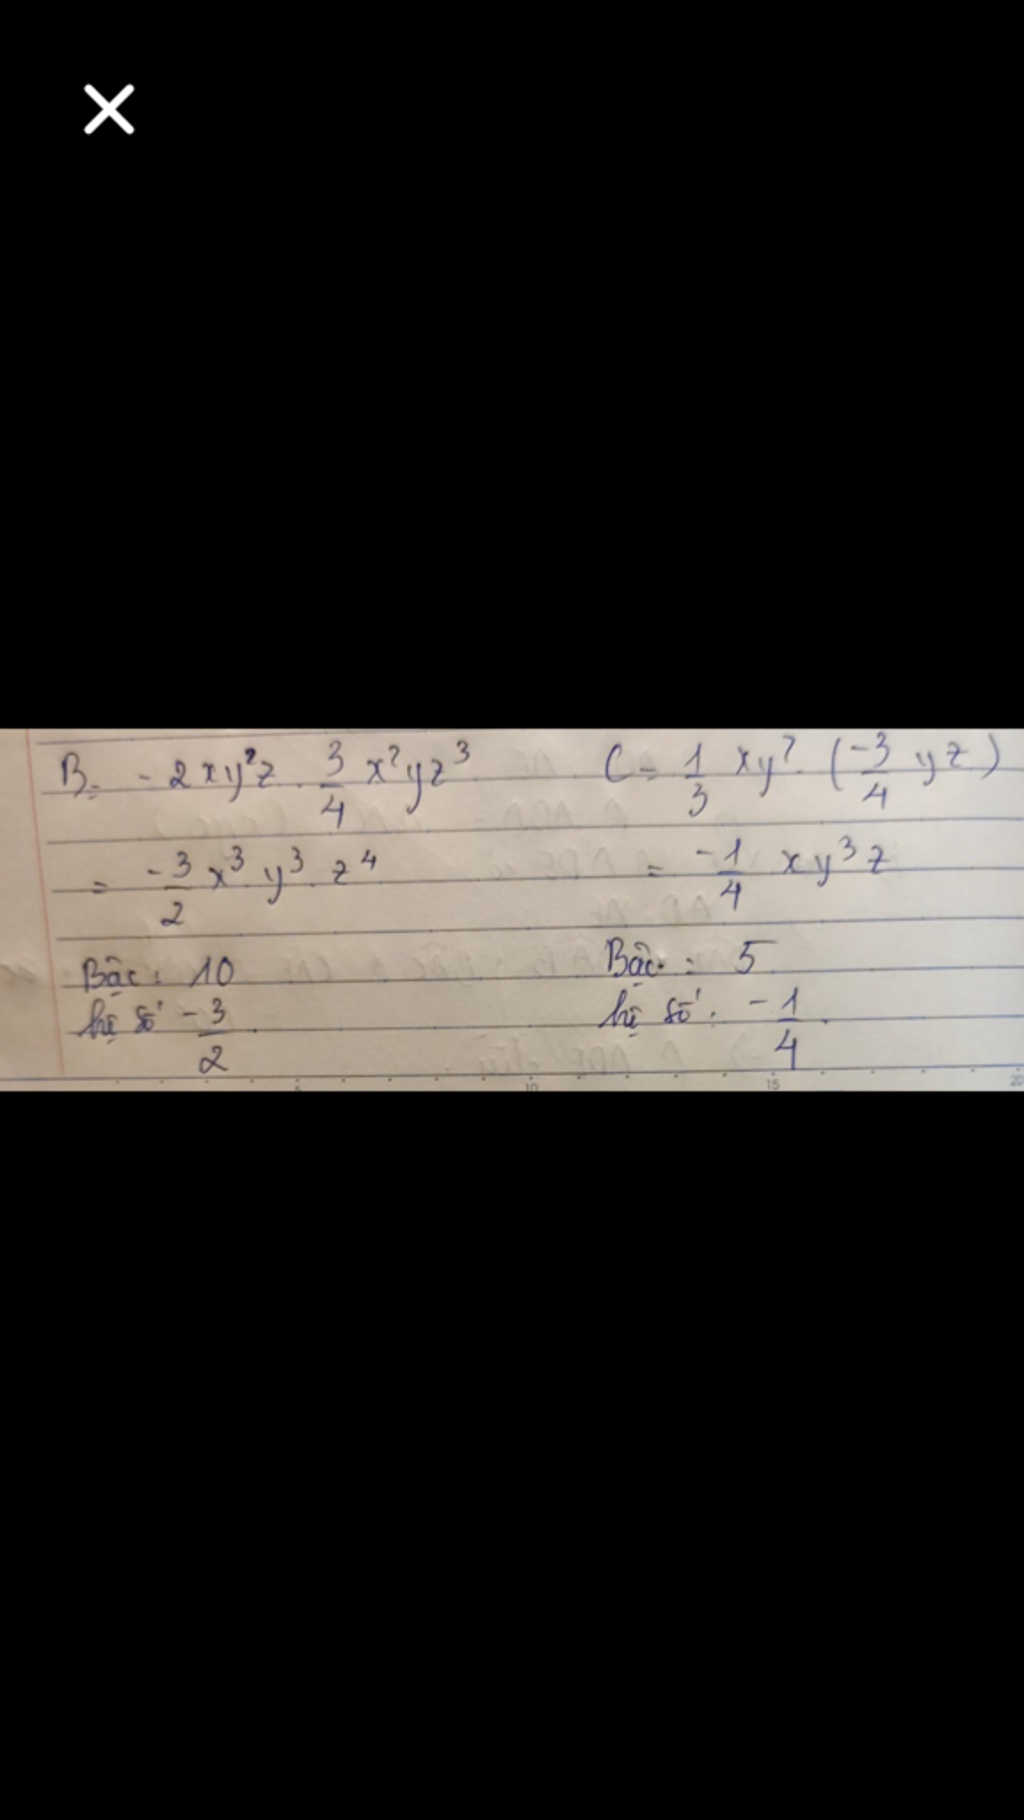 B = -2xy²z . 3/4 x²yz³
= -3/2 x³ y³ . z⁴
Bậc : 10
hệ số -3/2 .
C = 1/3 xy² . (-3/4 yz)
= -1/4 xy³z
Bậc : 5
hệ số : -1/4 .
10
15
20